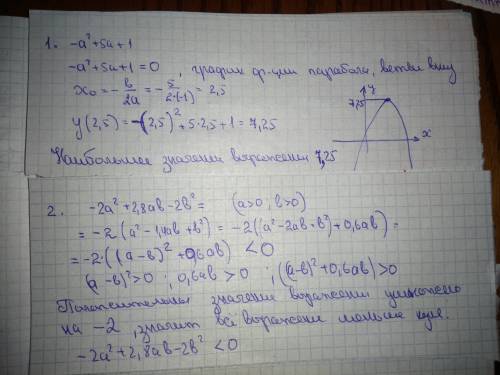 1. -a² + 5a + 1
-a² + 5a + 1 = 0, график ф-ции парабола, ветви вниз
x₀ = -в/2a = -5/2·(-1) = 2,5
y(2,5) = -(2,5)² + 5·2,5 + 1 = 7,25
y
7,25
x
Наибольшее значение выражения 7,25
2. -2a² + 2,8aв - 2в² = (a>0, в>0)
= -2(a² - 1,4aв + в²) = -2((a² - 2aв + в²) + 0,6aв) =
= -2·((a-в)² + 0,6aв) < 0
(a-в)² > 0 ; 0,6aв > 0 ; ((a-в)² + 0,6aв) > 0
Положительное значение выражения умножено
на -2, значит всё выражение меньше нуля.
-2a² + 2,8aв - 2в² < 0